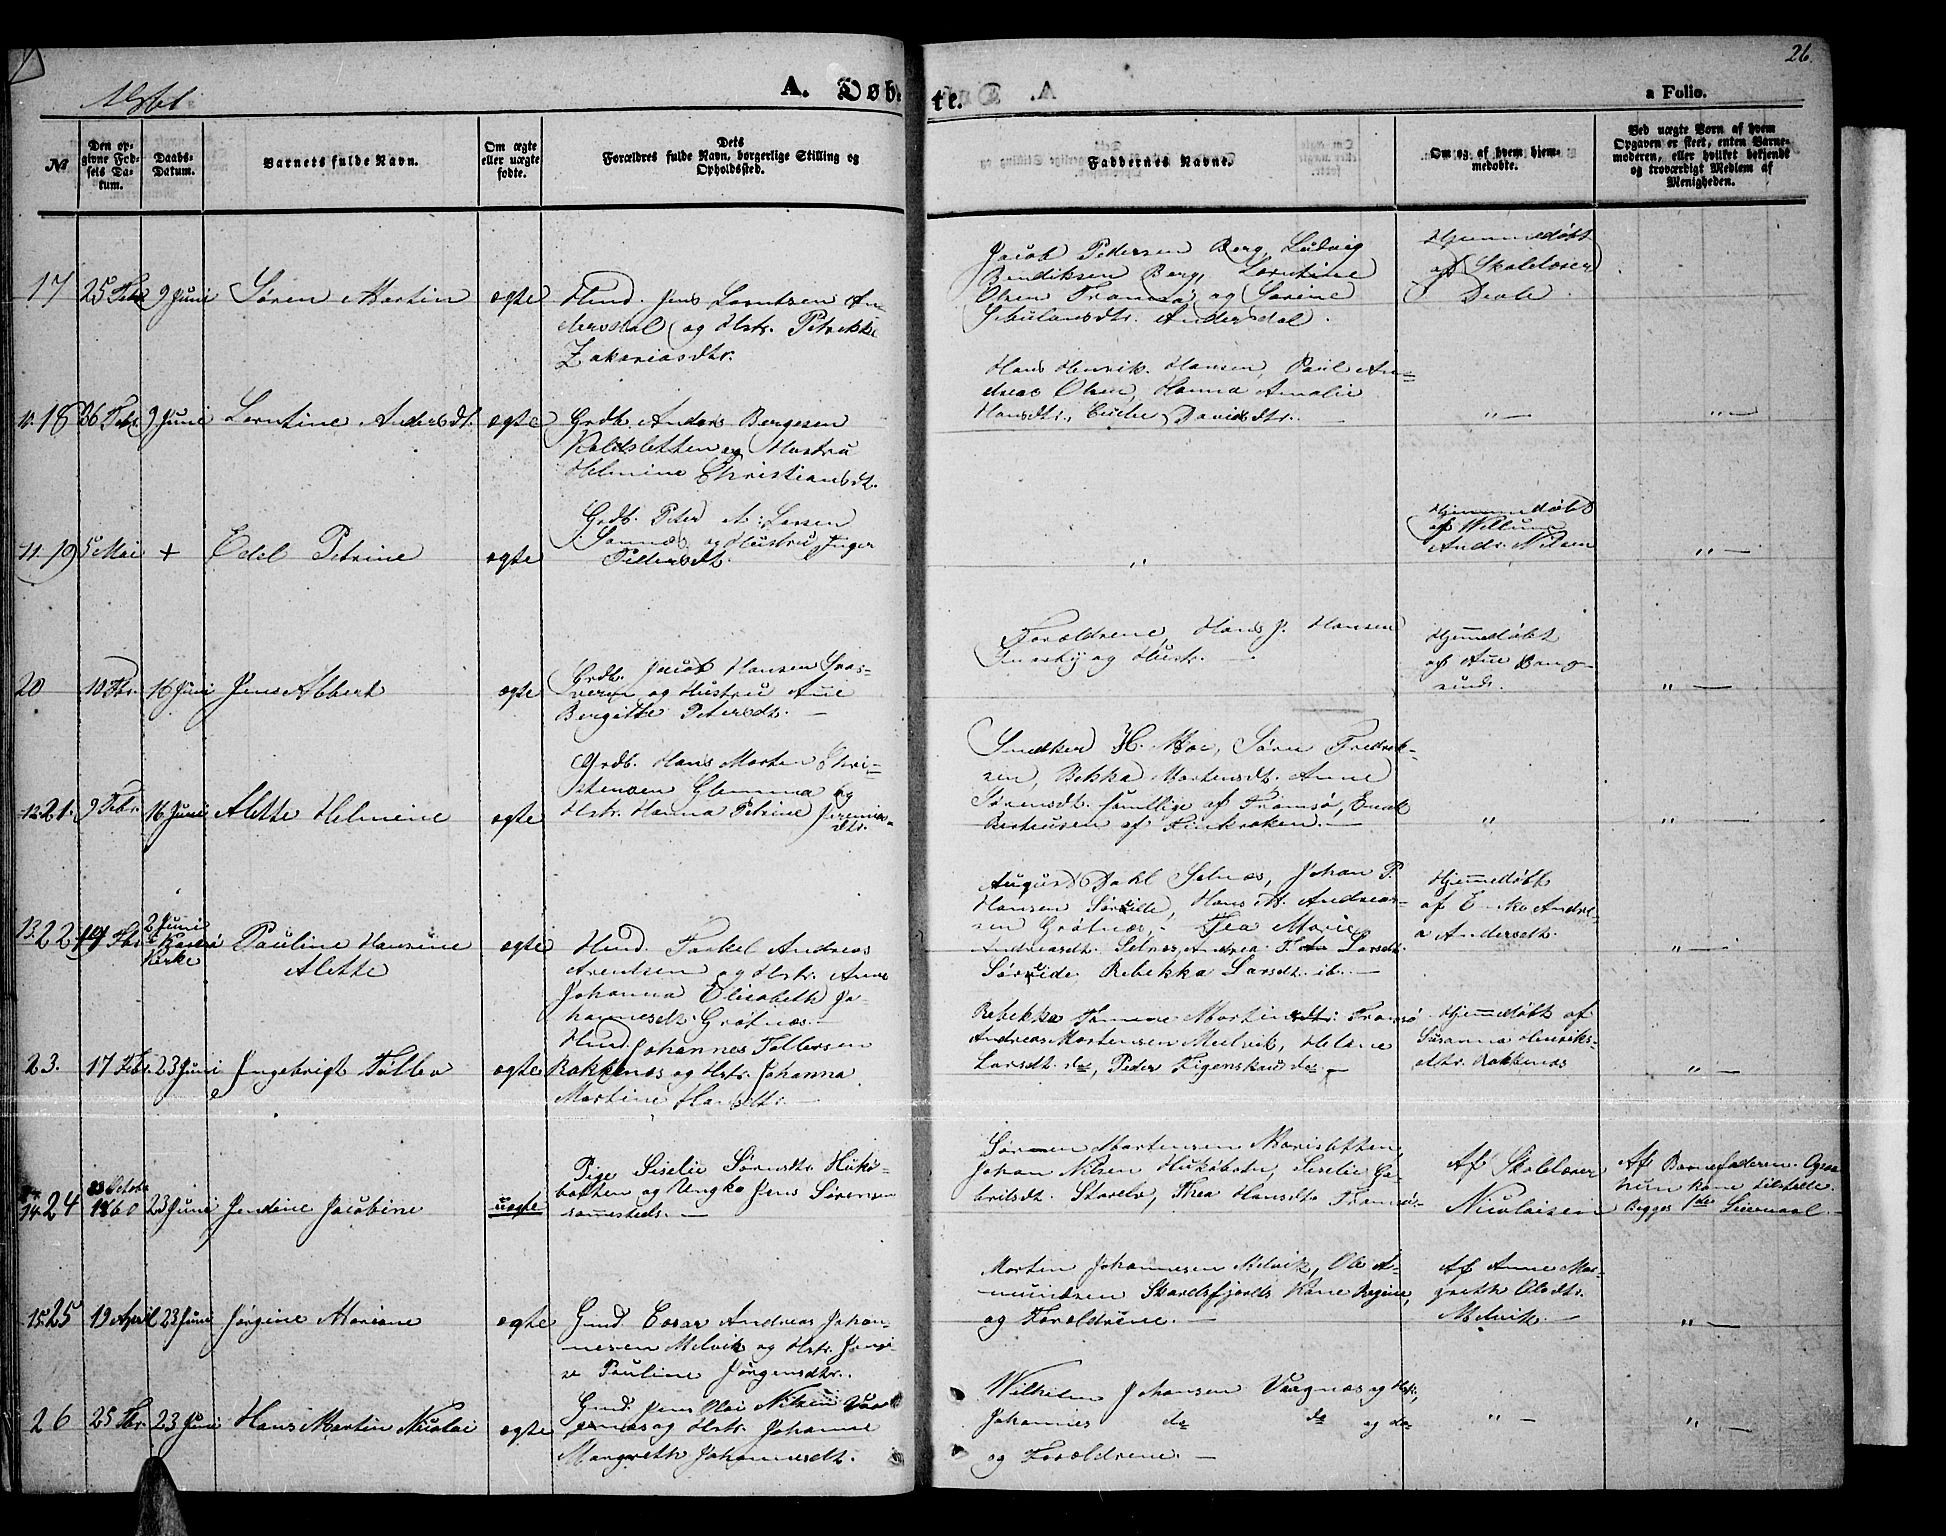 1861
A. Døb-
te.
26
a Folio.
№
Den op-
givne Fød-
sels Da-
tum.
Daabs-
Datum.
Barnets fulde Navn.
Om ægte
eller uægte
fødte.
Dets
Forældres fulde Navn, borgerlige Stilling og
Opholdssted.
Faddernes Navne.
Om og af hvem hjem-
medøbte.
Ved uægte Børn af hvem
Opgaven er skeet, enten Barne-
moderen, eller hvilket bekjendt
og troværdigt Medlem af
Menigheden.
17 25 Febr 9 Juni Søren Martin ægte
Huusmd. Jens Lorntsen An-
dersdal og Hstr. Petrikke
Zakariasdtr.
Jacob Pedersen Berg, Ludvig
Bendiksen Berg, Lorntine
Olsen Tromsø og Sorine
Andersdal.
Hjemmedøbt
af Skolelærer
10. 18 26 Febr 9 Juni Lorntine Andersdt. ægte
Grdb. Anders Bergesen
og Hustru
Helmine Christiansdt.
Hans Henrik Hansen, Paul An-
dreas Olsen, Hanna Amalie
Hansdtr., Davidsdtr.
" — " —
11. 19 5 Mai + Edel Petrine ægte
Grdb. Peter A. Larsen
og Hustru Inger
Pedersdt.
"
Hjemmedøbt
af Willum
Andr. Nilsen
" —
20 10 Fbr. 16 Juni Jens Albert ægte
Grdb. Jacob Hansen
og Hustru Ane
Bergitte Petersdt. —
Forældrene, Hans J. Hansen
og Hustr. —
Hjemmedøbt
af Ane
" —
12. 21. 9 Febr. 16 Juni Alette Helmine ægte
Grdb. Hans Morten Chri-
stensen og
Hstr. Hanna Petrine Jeremias-
dtr.
Snedker H. Moe, Søren Fredrik-
sen, Bekka Mortensdt. Anne
Sørensdt. samtlige af Tromsø,
af Finkroken. —
" " —
13. 22 19 Fbr. 2 Juni
Karlsø
Kirke
Pauline Hansine
Alette
ægte
Huusmd. Torkel Andreas
Arentsen og Hstr. Ane
Johanna Elisabeth Jo-
hannesdt. Grøtnæs. —
August Dahl Selnæs, Johan P.
Hansen Søreide, Hans A. Andreas-
sen Grøtnæs, Thea Marie
Andreasdt. Selnæs, Andrea Larsdt.
Søreide, Rebekka Larsdt. ib. —
Hjemmedøbt
af Enke Andre-
a Andersdt.
" —
23. 17 Febr. 23 Juni Ingebrigt Tollev ægte
Huusmd. Johannes Tollersen
Bakkenæs og Hstr. Johanna
Martine Hansdtr. —
Rebekka Mortensdtr. Tromsø
Andreas Mortensen Meelvik, Helene
Larsdt. do, Peder Figenskau do. —
Hjemmedøbt af
Susanna Henriks-
dtr. Bakkenæs
" —
14. 24 23 Octobr
1860 23 Juni Jendine Jacobine uægte
Pige Siselie Sørnsdtr. Hukø-
botten og Ungkr Jens Sørensen
sammesteds. —
Sørren Mortensen Mariesletten,
Johan Nilsen Hukøbotn, Siselie Ga-
brilsdt. Storelv, Thea Hansdtr Tromsø.
Af Skolelærer
Nicolaisen
Af Barnefaderen. Ogsaa
hun kom tilstede.
Begges 1ste Leiermaal. —
15. 25 19 April 23 Juni Jørgine Mariane ægte
Gmd. Andreas Johan-
nesen Melvik og Hstr.
Pauline Jørgensdtr.
Morten Johannesen Melvik, Ole A-
mundsen Skardsfjords Kone Regine,
og Forældrene. —
Af Anne Mar-
grethe Olsdtr.
Melvik. —
" —
26 25 Fbr. 23 Juni Hans Martin Nicolai ægte
Gmd. Jens Olai Nilsen Vaa-
gnæs og Hstr. Johanne
Margreth Johannesdt.
Wilhelm Johansen Vaagnæs og Hstr,
Johannes do do og do
og Forældrene. —
" — " —